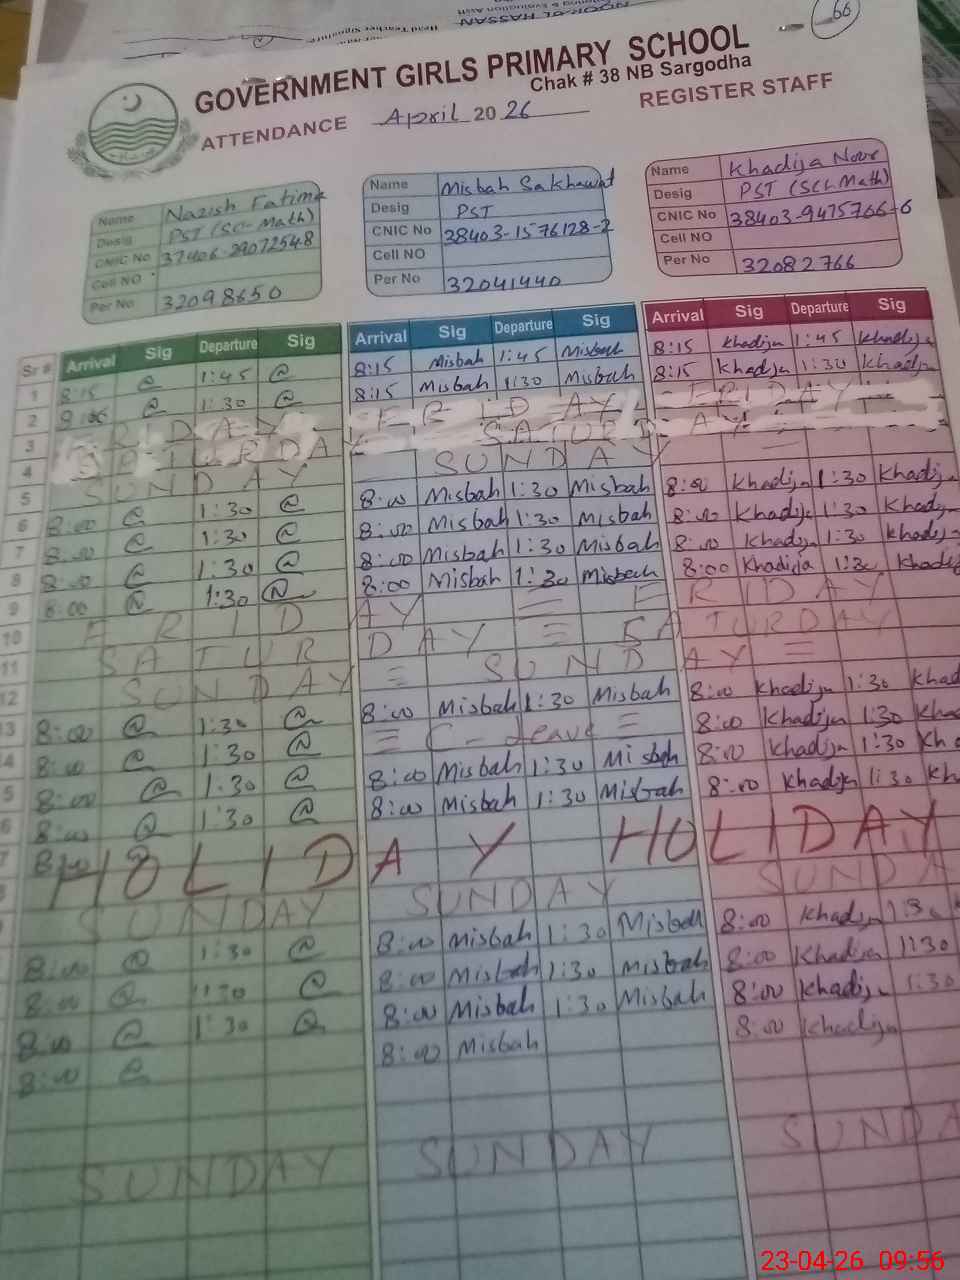 66
GOVERNMENT GIRLS PRIMARY SCHOOL
Chak # 38 NB Sargodha
ATTENDANCE April 2026 REGISTER STAFF
Name Nazish Fatima
Desig PST (SC-Math)
CNIC No
Cell NO
Per No 32098650
Name Misbah Sakhawat
Desig PST
CNIC No 38403-1576128-2
Cell NO
Per No 32041440
Name Khadija Noor
Desig PST (SCI-Math)
CNIC No 38403-9475766-6
Cell NO
Per No 32082766
Sr # Arrival Sig Departure Sig Arrival Sig Departure Sig Arrival Sig Departure Sig
1 8:15 1:45 8:15 Misbah 1:45 Misbah 8:15 Khadija 1:45 Khadija
2 1:30 8:15 Misbah 1:30 Misbah 8:15 Khadija 1:30 Khadija
3 FRIDAY FRIDAY FRIDAY
4 SATURDAY SATURDAY
5 SUNDAY SUNDAY
6 8:00 1:30 8:00 Misbah 1:30 Misbah 8:00 Khadija 1:30 Khadija
7 8:00 1:30 8:00 Misbah 1:30 Misbah 8:00 Khadija 1:30 Khadija
8 8:00 1:30 8:00 Misbah 1:30 Misbah 8:00 Khadija 1:30 Khadija
9 8:00 1:30 8:00 Misbah 1:30 Misbah 8:00 Khadija 1:30 Khadija
10 FRIDAY = FRIDAY
11 SATURDAY = SATURDAY =
12 SUNDAY = SUNDAY =
13 8:00 1:30 8:00 Misbah 1:30 Misbah 8:00 Khadija 1:30 Khad
8:00 1:30 = C-Leave = 8:00 Khadija 1:30 Kha
8:00 1:30 8:00 Misbah 1:30 Misbah 8:00 Khadija 1:30 Kh
8:00 1:30 8:00 Misbah 1:30 Misbah 8:00 Khadija 1:30 Kh
HOLIDAY HOLIDAY
SUNDAY SUNDAY SUNDA
8:00 1:30 8:00 Misbah 1:30 Misbah 8:00 Khadija 1:30
8:00 1:30 8:00 Misbah 1:30 Misbah 8:00 Khadija 1:30
8:00 1:30 8:00 Misbah 1:30 Misbah 8:00 Khadija 1:30
8:00 8:00 Misbah 8:00 Khadija
SUNDAY SUNDAY SUNDA
23-04-26 09:56